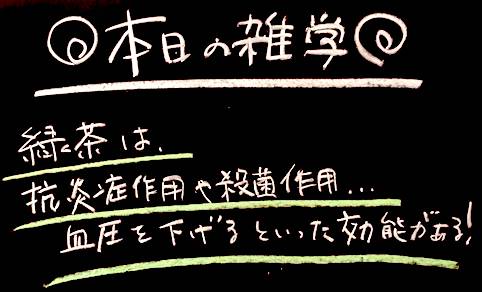 本日の雑学
緑茶は、
抗炎症作用や殺菌作用...
血圧を下げるといった効能がある!